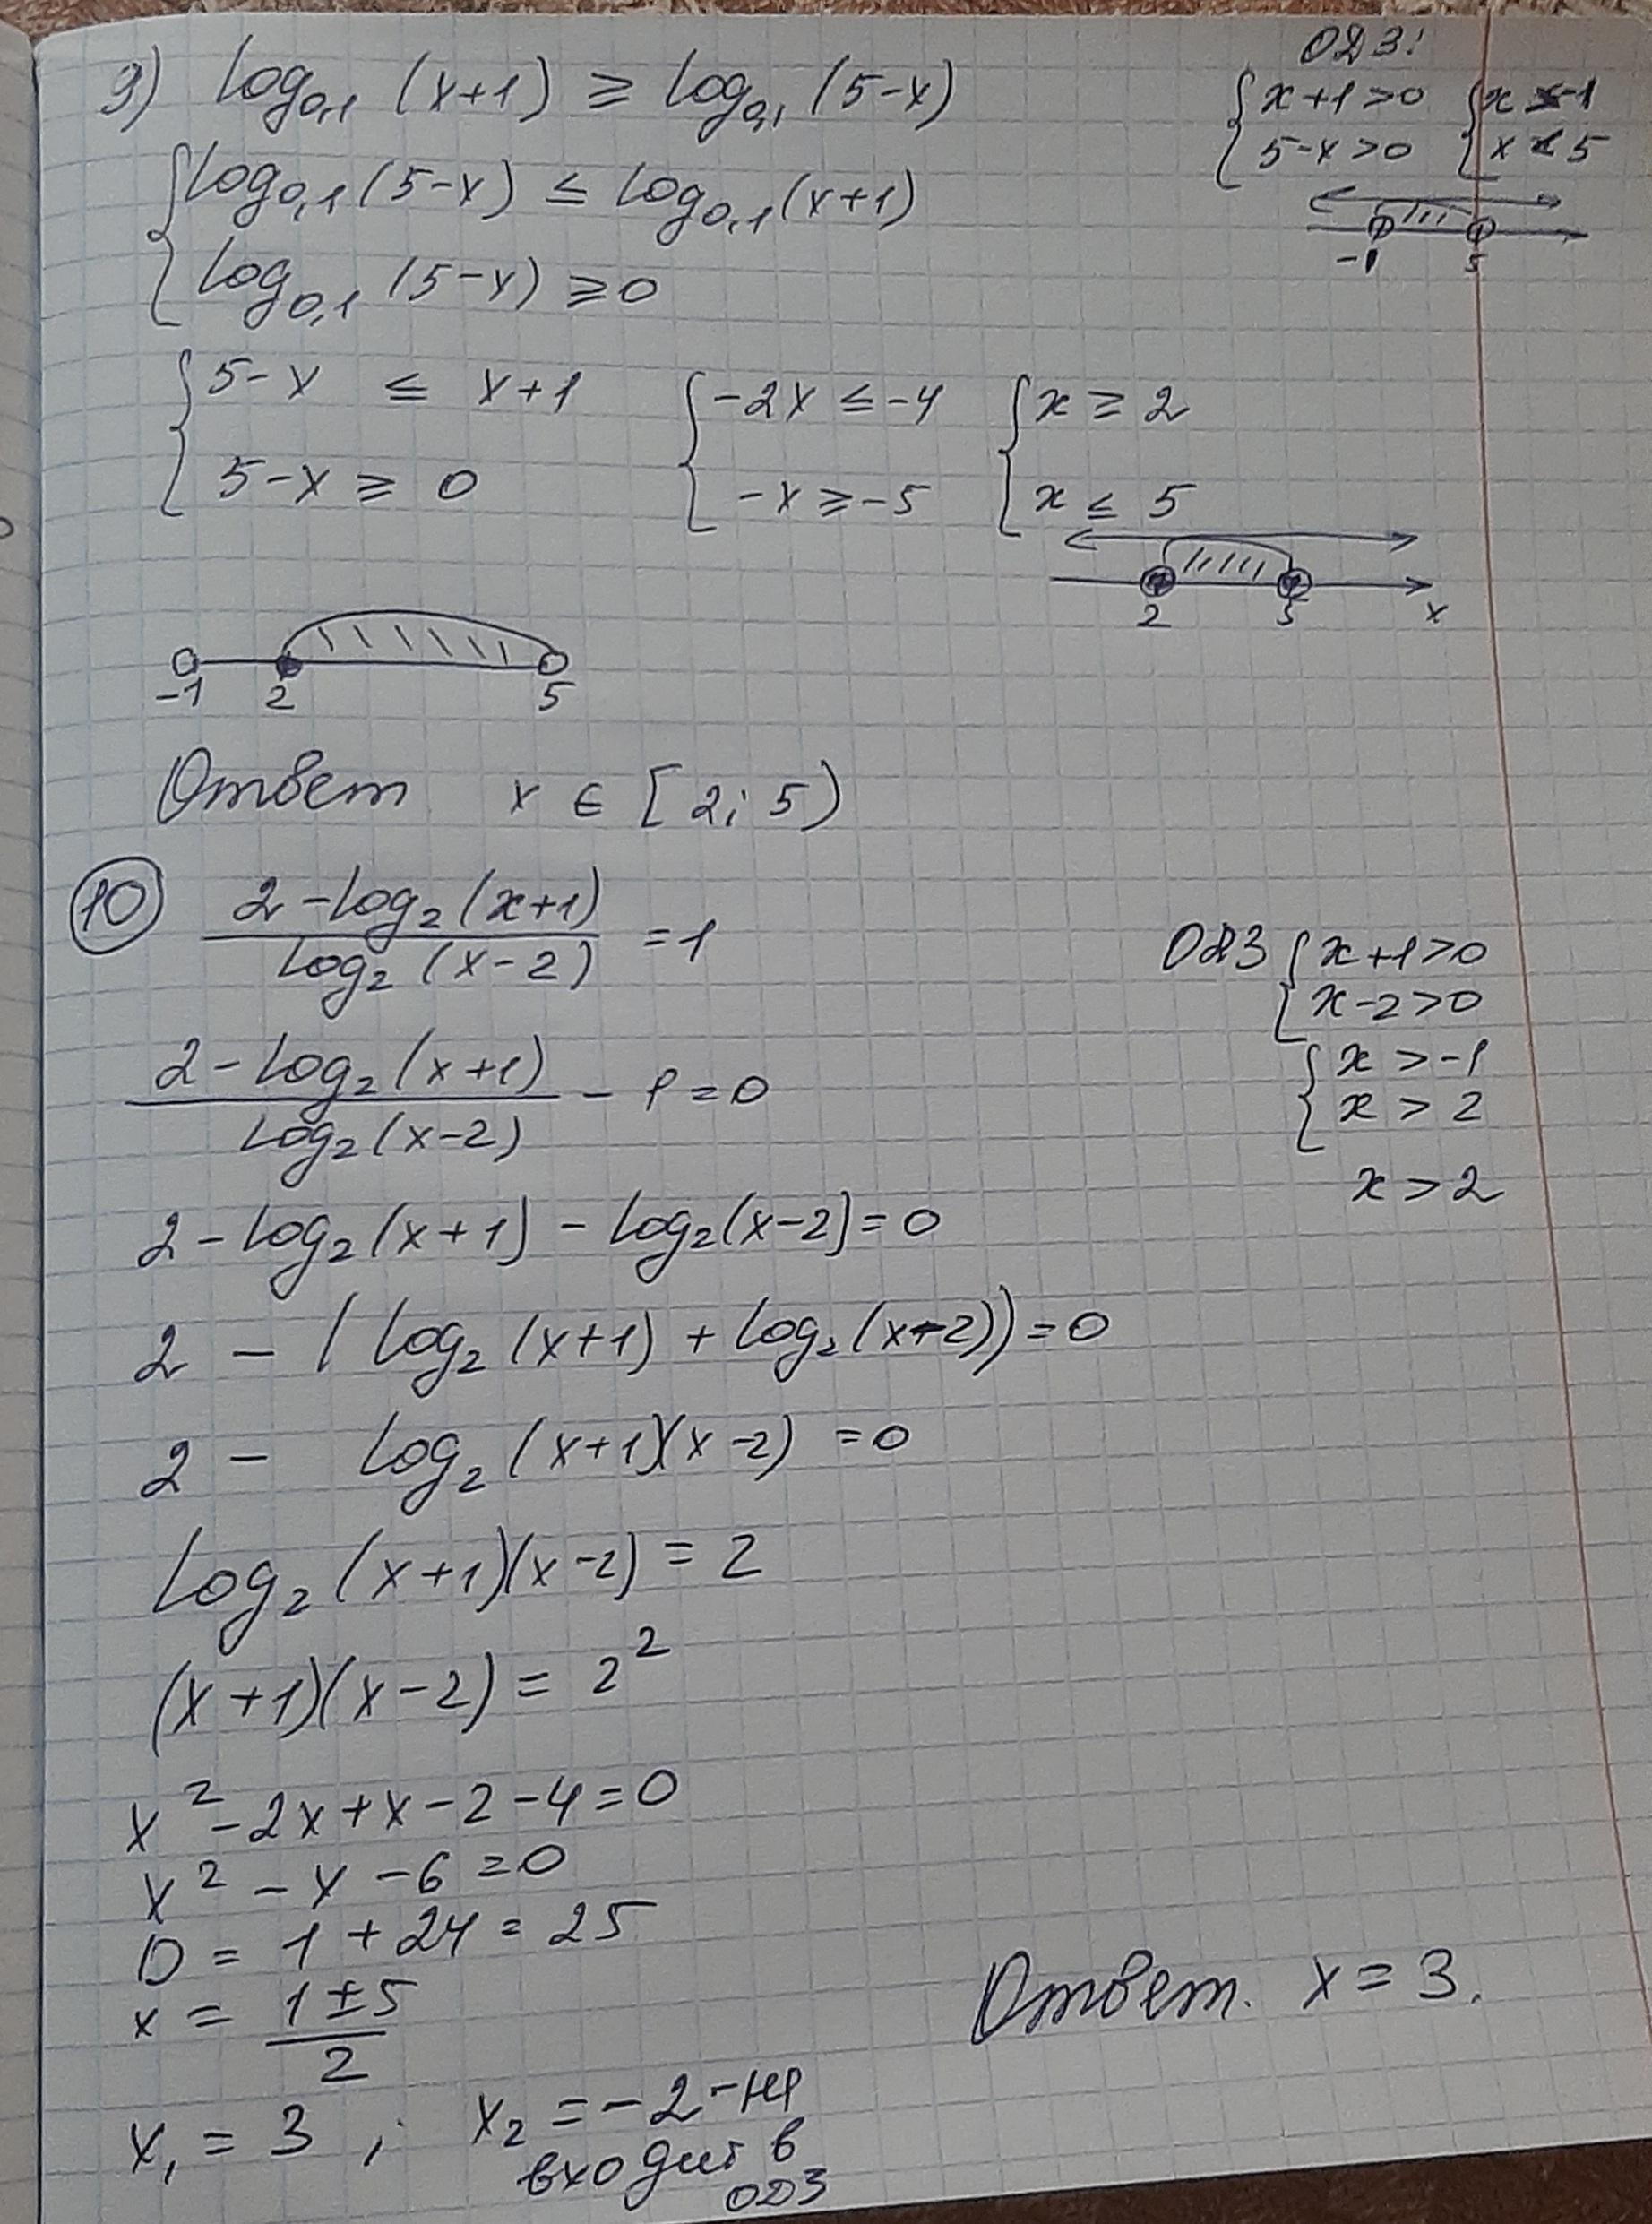 9) log₀,₁ (x+1) ≥ log₀,₁ (5-x)
ОДЗ:
{x+1>0 {x>-1
{5-x>0 {x<5
-1 5
{log₀,₁ (5-x) ≤ log₀,₁ (x+1)
{log₀,₁ (5-x) ≥ 0
{5-x ≤ x+1 {-2x ≤ -4 {x ≥ 2
{5-x ≥ 0 {-x ≥ -5 {x ≤ 5
2 5 x
-1 2 5
Ответ x ∈ [2; 5)
10 (2-log₂ (x+1))/(log₂ (x-2)) = 1
ОДЗ {x+1>0
{x-2>0
{x>-1
{x>2
x>2
(2-log₂ (x+1))/(log₂ (x-2)) - 1 = 0
2-log₂ (x+1) - log₂ (x-2) = 0
2 - (log₂ (x+1) + log₂ (x-2)) = 0
2 - log₂ (x+1)(x-2) = 0
log₂ (x+1)(x-2) = 2
(x+1)(x-2) = 2²
x²-2x+x-2-4=0
x²-x-6=0
D = 1+24 = 25
x = (1±5)/2
x₁ = 3 ; x₂ = -2 -не
входит в
ОДЗ
Ответ. x = 3.